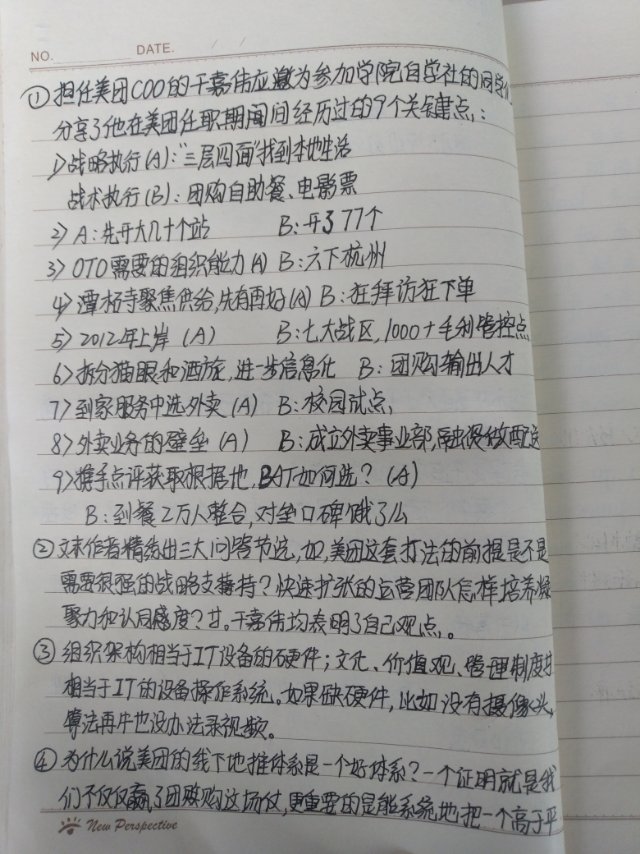 NO. DATE. / /
① 担任美团COO的干嘉伟应邀为参加学院自学社的同学们
分享了他在美团任职期间经历过的9个关键点：
1> 战略执行(A)："三层四面"找到本地生活
战术执行(B)：团购自助餐、电影票
2> A：先开大几十个站 B：开了77个
3> OTO需要的组织能力(A) B：六下杭州
4> 潭柘寺聚焦供给，先有再好(A) B：狂拜访狂下单
5> 2012年上岸 (A) B：七大战区，1000+毛利管控点
6> 拆分猫眼和酒旅，进一步信息化 B：团购输出人才
7> 到家服务中选外卖 (A) B：校园试点，
8> 外卖业务的壁垒 (A) B：成立外卖事业部，融资做配送
9> 携手点评获取根据地，BAT如何选？(A)
B：到餐2万人整合，对垒口碑饿了么
② 文末作者精练出三大问答节选，如，美团这套打法的前提是不是
需要很强的战略支持？快速扩张的运营团队怎样培养凝
聚力和认同感度？甘。干嘉伟均表明了自己观点。
③ 组织架构相当于IT设备的硬件；文化、价值观、管理制度等
相当于IT的设备操作系统。如果缺硬件，比如没有摄像头，
算法再牛也没办法录视频。
④ 为什么说美团的线下地推体系是一个好体系？一个证明就是我
们不仅仅赢了团购这场仗，更重要的是能系统地把一个高于平
New Perspective